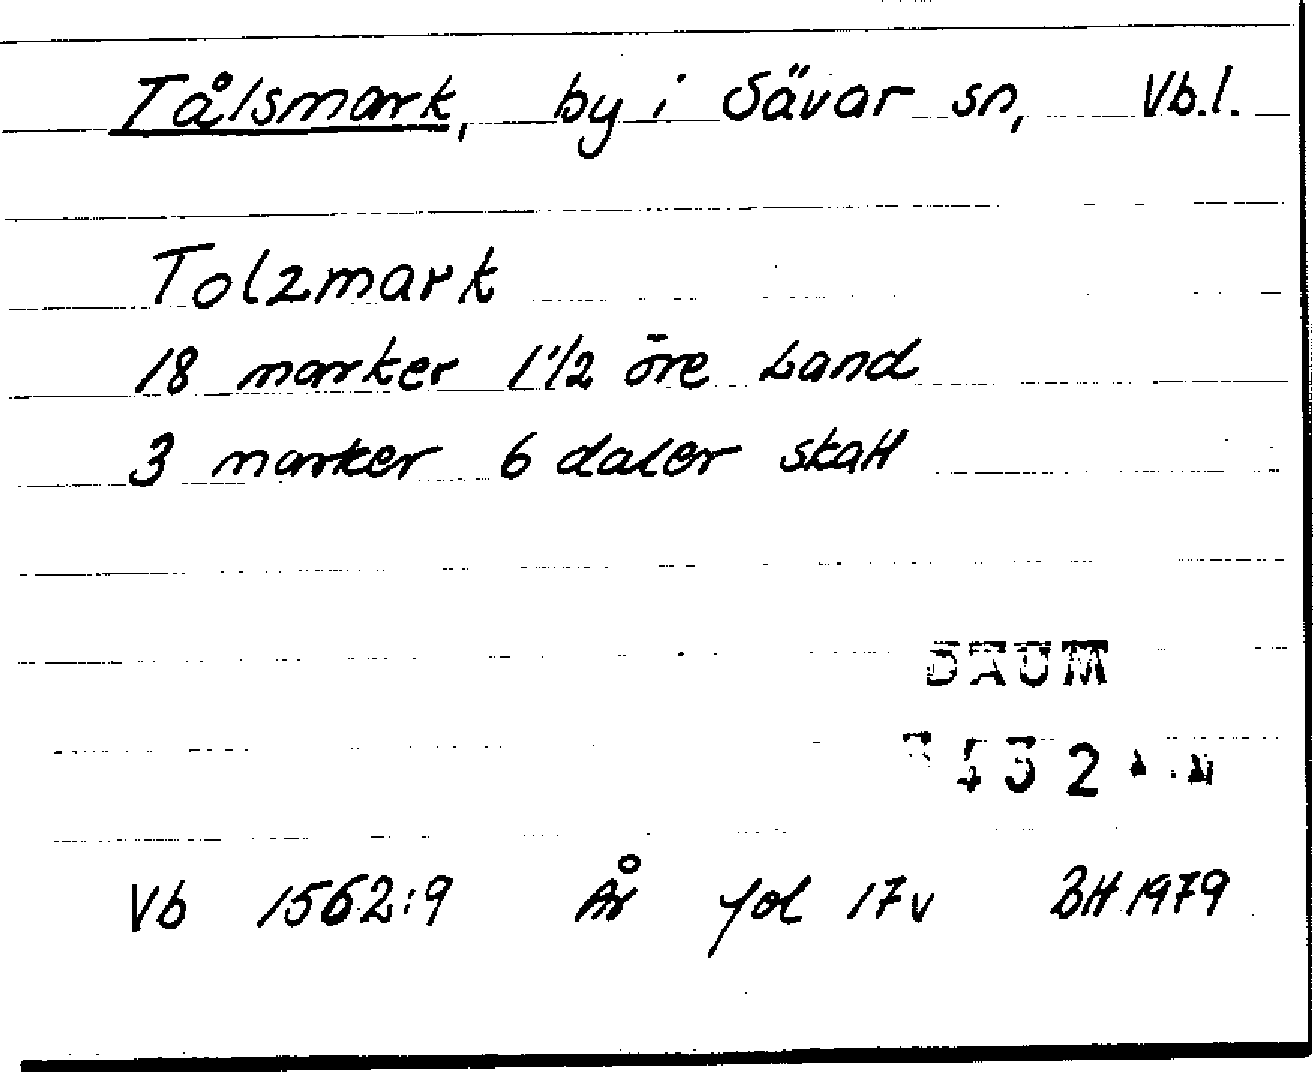 Tålsmark, by i Sävar sn, Vb.l.
Tolzmark
18 marker 1 1/2 öre Land
3 marker 6 daler skatt
DAUM
Vb 1562:9 År fol 17v BH 1979